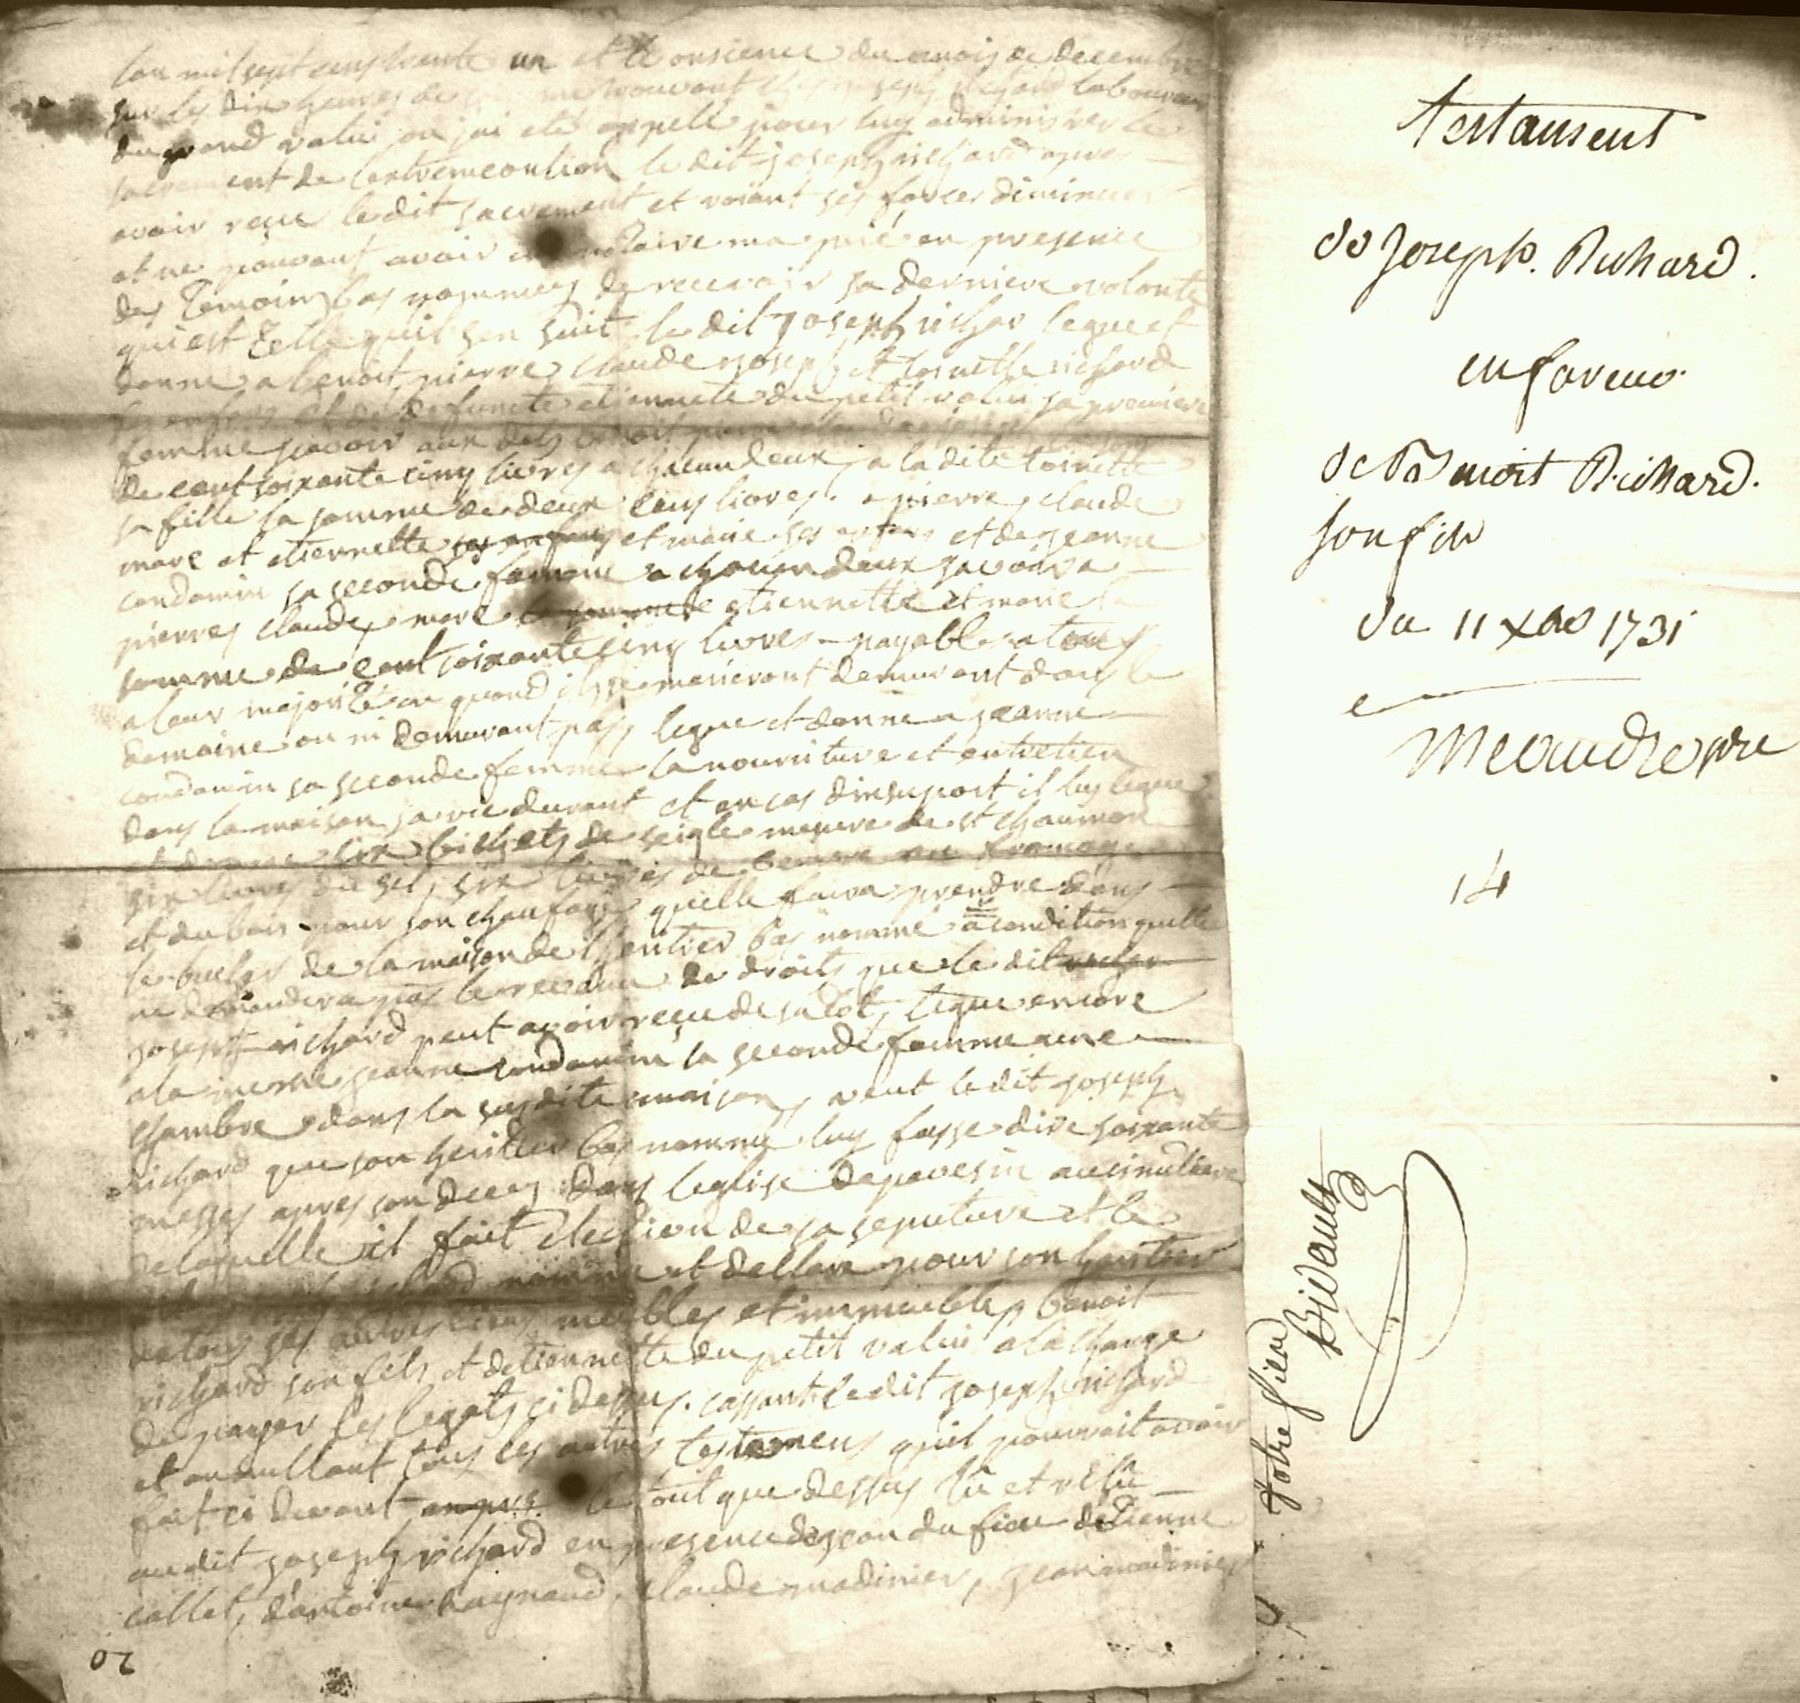 lan mil sept cens trente un et le onsieme du mois de decembre
sur les dix heures de me trouvant joseph richard laboureur
du grand valui ou jai eté appellé pour luy administrer le
sacrement de lextremeontion le dit joseph richard apres
avoir reçu le dit sacrement et voiant ses forces diminuer
et ne pouvant avoir notaire ma prié en presence
des temoins bas nommes de recevoir sa derniere volonté
qui est telle quil sen suit le dit joseph richar legue et
donne a benoit, pierre claude joseph et toinette richard
ses enfans et de defuncte etiennete du petit valui sa premiere
femme scavoir aux dits benoit pierre claude joseph
de cent soixante cinq livres a chacun deux, a la dite toinette
sa fille la somme de deux cens livres. a pierre, claude
marc et etiennette ses enfans et marie ses enfans et de jeanne
condamin sa seconde femme a chacun deux scavoir a
pierre, claude, marc la somme de etiennette et marie la
somme de cent soixante cinq livres payable a tous
a leur majorité ou quand ils se marieront demurant dans le
domaine ou ni demurant pas, legue et donne a jeanne
condamin sa seconde femme la nourriture et entretien
dans la maison sa vie durant et en cas dinsuport il luy legue
et donne six bichets de seigle mesure de st chaumon
six livres de sel, six livres de beurre ou fromage
et du bois pour son chaufage quelle faira prendre dans
le bucher de la maison de lheritier bas nommé a condition quelle
ne demandera pas le revenu de droits que le dit
joseph richard peut avoir reçu de sa dot, legue encore
a la mesme jeanne condamin sa seconde femme une
chambre dans la susdite maison, veut le dit joseph
richard que son heritier bas nommé luy fasse dire soixante
messes apres son deces dans leglise de pavesin au cimetiere
de laquelle il fait election de sa sepulture et le
dit joseph richard nomme et declare pour son heritier
de tous ses autres biens meubles et immeubles benoit
richard son fils et detiennette du petit valui a la charge
de payer les legats ci dessus. cassant le dit joseph richard
et annullant tous les autres testamens quil pourroit avoir
fait ci devant le tout que dessus lu et relu
au dit joseph richard en presence de jean du fieu detienne
callet, dantoine raynaud, claude madinier, jean madinier
02
testament
de Joseph. Richard.
en faveur
de Benoit Richard.
son fils
du 11 xbre 1731
14
Bidault